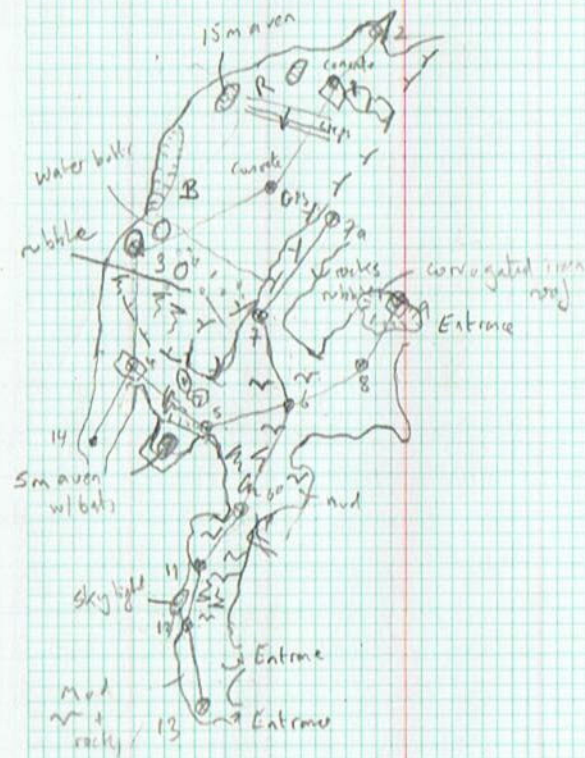 15m aven
2
concrete
R
steps
Water bottle
concrete
B
7a
rubble
3
rocks
rubble
corrugated iron
roof
7
Entrance
4
8
6
5
14
5m aven
w/ bats
mud
11
Skylight
12
Entrance
Mud
+
rocks
13
Entrance